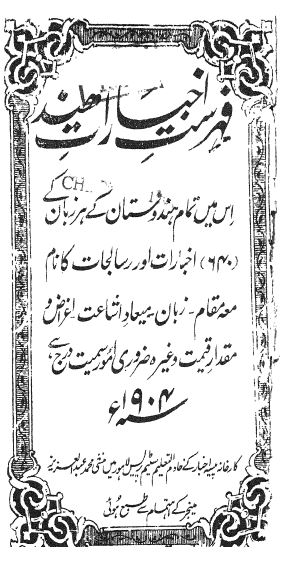 فہرست اخبارات ہند
CH
اس میں تمام ہندوستان کے ہر زبان کے
(۶۴۰) اخبارات اور رسالجات کا نام
معہ مقام۔ زبان۔ میعاد اشاعت۔ اغراض و
مقدار قیمت وغیرہ ضروری امور سمیت درج ہے
سنہ ۱۹۰۴ء
کارخانہ پیسہ اخبار کے خادم التعلیم سٹیم پریس لاہور میں منشی محمد عبدالعزیز
مینجر کے اہتمام سے طبع ہوئی